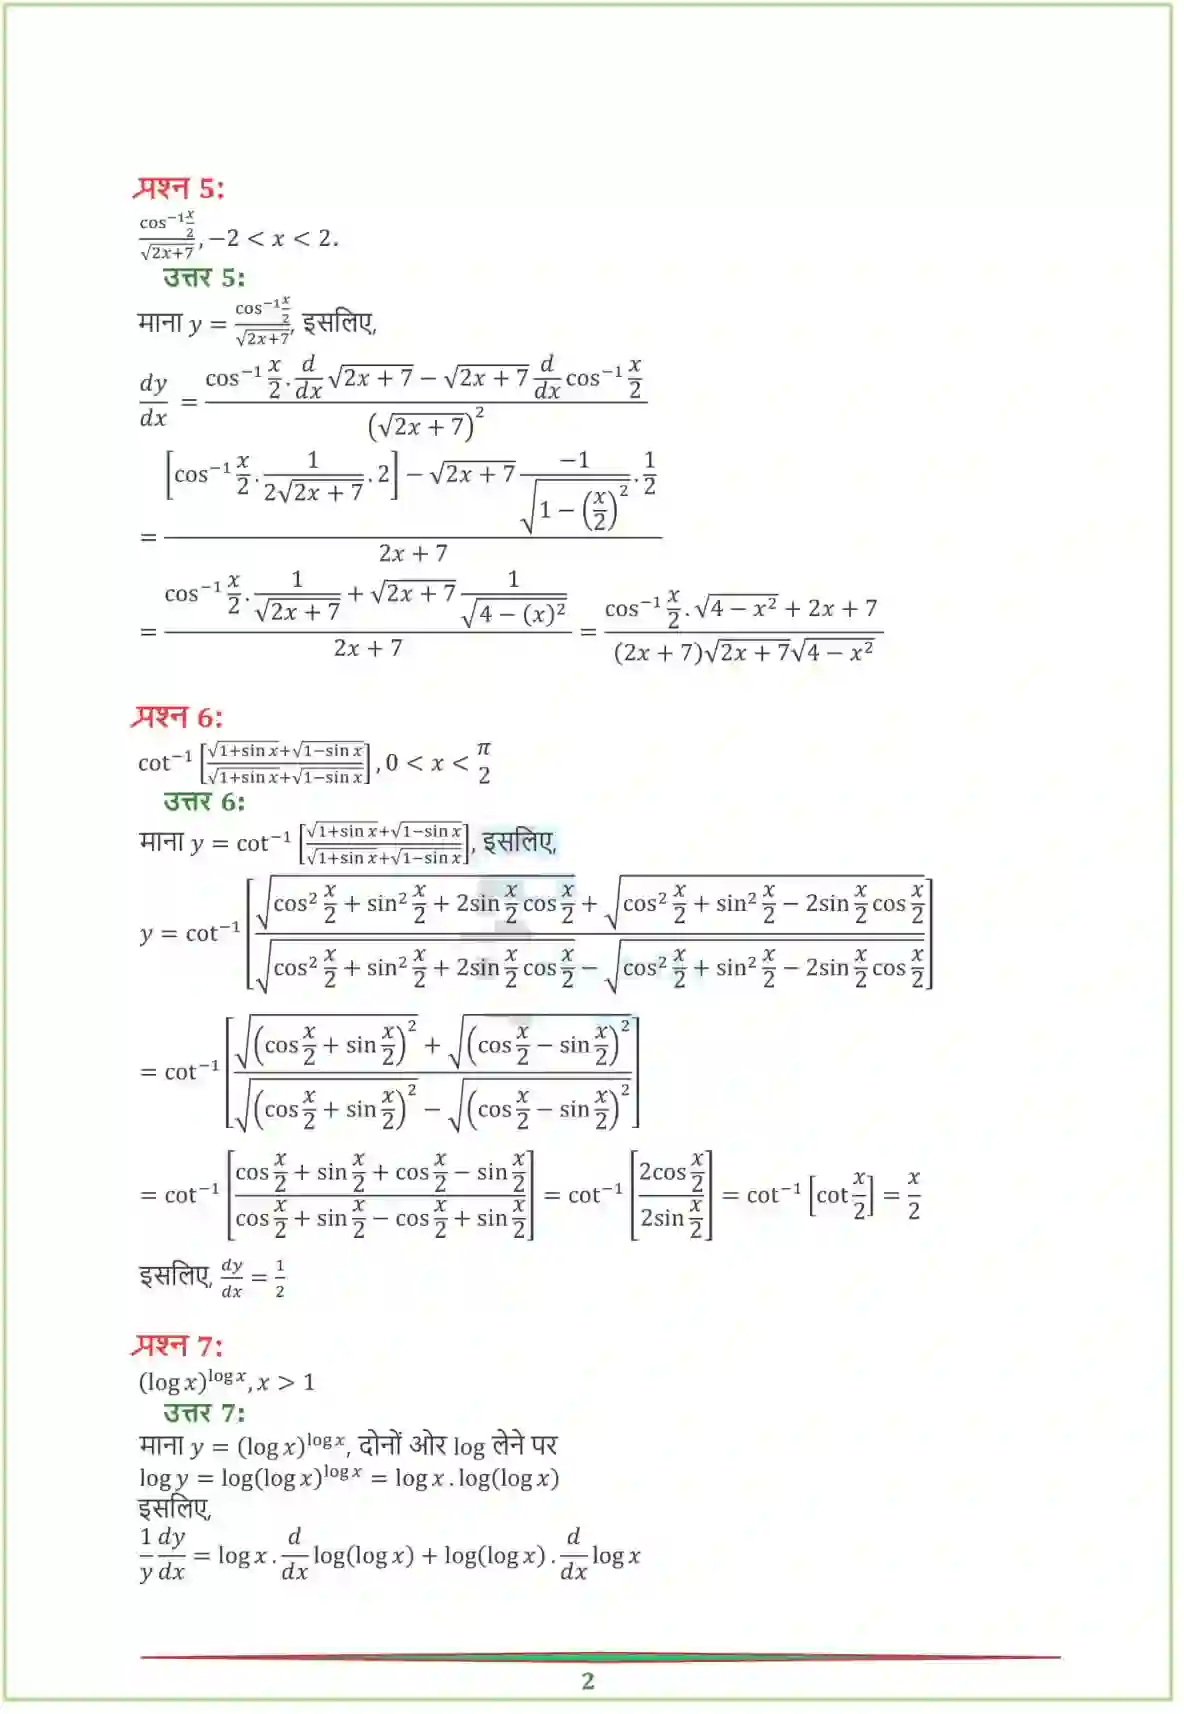 प्रश्न 5:
$\frac{\cos^{-1}\frac{x}{2}}{\sqrt{2x+7}}, -2 < x < 2.$
उत्तर 5:
माना $y = \frac{\cos^{-1}\frac{x}{2}}{\sqrt{2x+7}}$, इसलिए,
$\frac{dy}{dx} = \frac{\cos^{-1}\frac{x}{2}.\frac{d}{dx}\sqrt{2x+7} - \sqrt{2x+7}\frac{d}{dx}\cos^{-1}\frac{x}{2}}{(\sqrt{2x+7})^2}$
$= \frac{\left[\cos^{-1}\frac{x}{2}.\frac{1}{2\sqrt{2x+7}}.2\right] - \sqrt{2x+7}\frac{-1}{\sqrt{1-\left(\frac{x}{2}\right)^2}}.\frac{1}{2}}{2x+7}$
$= \frac{\cos^{-1}\frac{x}{2}.\frac{1}{\sqrt{2x+7}} + \sqrt{2x+7}\frac{1}{\sqrt{4-(x)^2}}}{2x+7} = \frac{\cos^{-1}\frac{x}{2}.\sqrt{4-x^2} + 2x+7}{(2x+7)\sqrt{2x+7}\sqrt{4-x^2}}$
प्रश्न 6:
$\cot^{-1}\left[\frac{\sqrt{1+\sin x}+\sqrt{1-\sin x}}{\sqrt{1+\sin x}+\sqrt{1-\sin x}}\right], 0 < x < \frac{\pi}{2}$
उत्तर 6:
माना $y = \cot^{-1}\left[\frac{\sqrt{1+\sin x}+\sqrt{1-\sin x}}{\sqrt{1+\sin x}+\sqrt{1-\sin x}}\right]$, इसलिए,
$y = \cot^{-1}\left[\frac{\sqrt{\cos^2\frac{x}{2}+\sin^2\frac{x}{2}+2\sin\frac{x}{2}\cos\frac{x}{2}} + \sqrt{\cos^2\frac{x}{2}+\sin^2\frac{x}{2}-2\sin\frac{x}{2}\cos\frac{x}{2}}}{\sqrt{\cos^2\frac{x}{2}+\sin^2\frac{x}{2}+2\sin\frac{x}{2}\cos\frac{x}{2}} - \sqrt{\cos^2\frac{x}{2}+\sin^2\frac{x}{2}-2\sin\frac{x}{2}\cos\frac{x}{2}}}\right]$
$= \cot^{-1}\left[\frac{\sqrt{\left(\cos\frac{x}{2}+\sin\frac{x}{2}\right)^2} + \sqrt{\left(\cos\frac{x}{2}-\sin\frac{x}{2}\right)^2}}{\sqrt{\left(\cos\frac{x}{2}+\sin\frac{x}{2}\right)^2} - \sqrt{\left(\cos\frac{x}{2}-\sin\frac{x}{2}\right)^2}}\right]$
$= \cot^{-1}\left[\frac{\cos\frac{x}{2}+\sin\frac{x}{2}+\cos\frac{x}{2}-\sin\frac{x}{2}}{\cos\frac{x}{2}+\sin\frac{x}{2}-\cos\frac{x}{2}+\sin\frac{x}{2}}\right] = \cot^{-1}\left[\frac{2\cos\frac{x}{2}}{2\sin\frac{x}{2}}\right] = \cot^{-1}\left[\cot\frac{x}{2}\right] = \frac{x}{2}$
इसलिए, $\frac{dy}{dx} = \frac{1}{2}$
प्रश्न 7:
$(\log x)^{\log x}, x > 1$
उत्तर 7:
माना $y = (\log x)^{\log x}$, दोनों ओर log लेने पर
$\log y = \log(\log x)^{\log x} = \log x.\log(\log x)$
इसलिए,
$\frac{1}{y}\frac{dy}{dx} = \log x.\frac{d}{dx}\log(\log x) + \log(\log x).\frac{d}{dx}\log x$
2